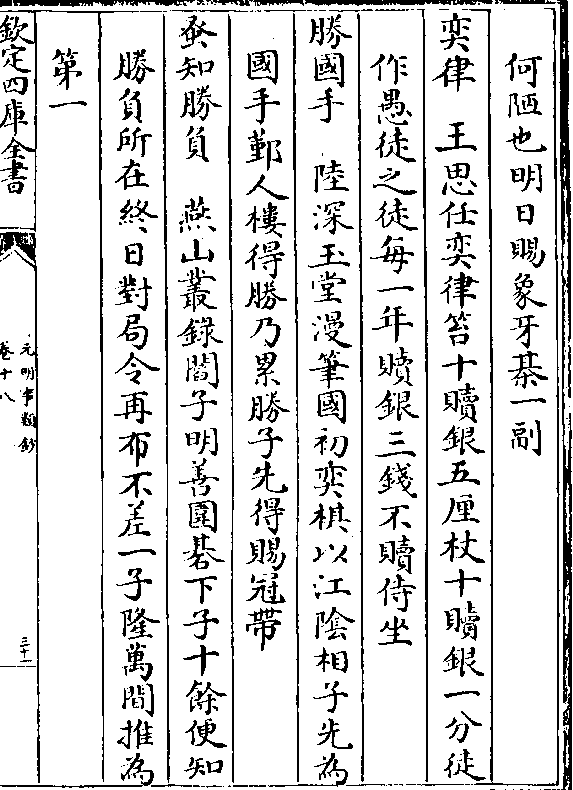 何陋也明日賜象牙棊一副
奕律　王思任奕律笞十贖銀五厘杖十贖銀一分徒
作愚徒之徒每一年贖銀三錢不贖侍坐
勝國手　陸深玉堂漫筆國初奕棋以江陰相子先為
國手鄞人樓得勝乃累勝子先得賜冠帶
蚤知勝負　燕山叢錄閻子明善圍碁下子十餘便知
勝負所在終日對局令再布不差一子隆萬間推為
第一
欽定四庫全書
元明事類鈔
卷十八
三十一